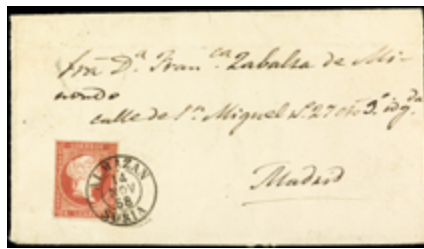 Sra D.ª Fran.ca Zabalza de Mi-
nondo
calle de S.n Miguel n.º 27 3.º izq.da
Madrid
ALMAZAN
14
NOV
58
SORIA